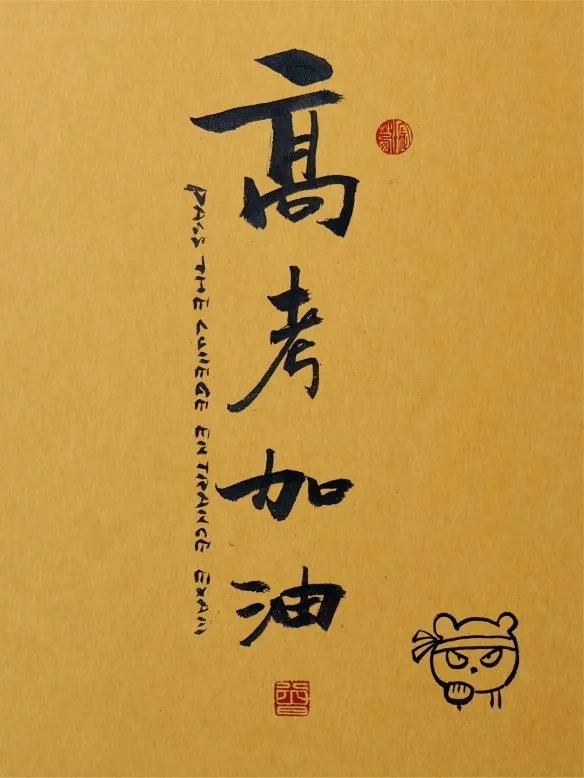 高考加油
PASS THE CULLEGE ENTRANCE EXAM